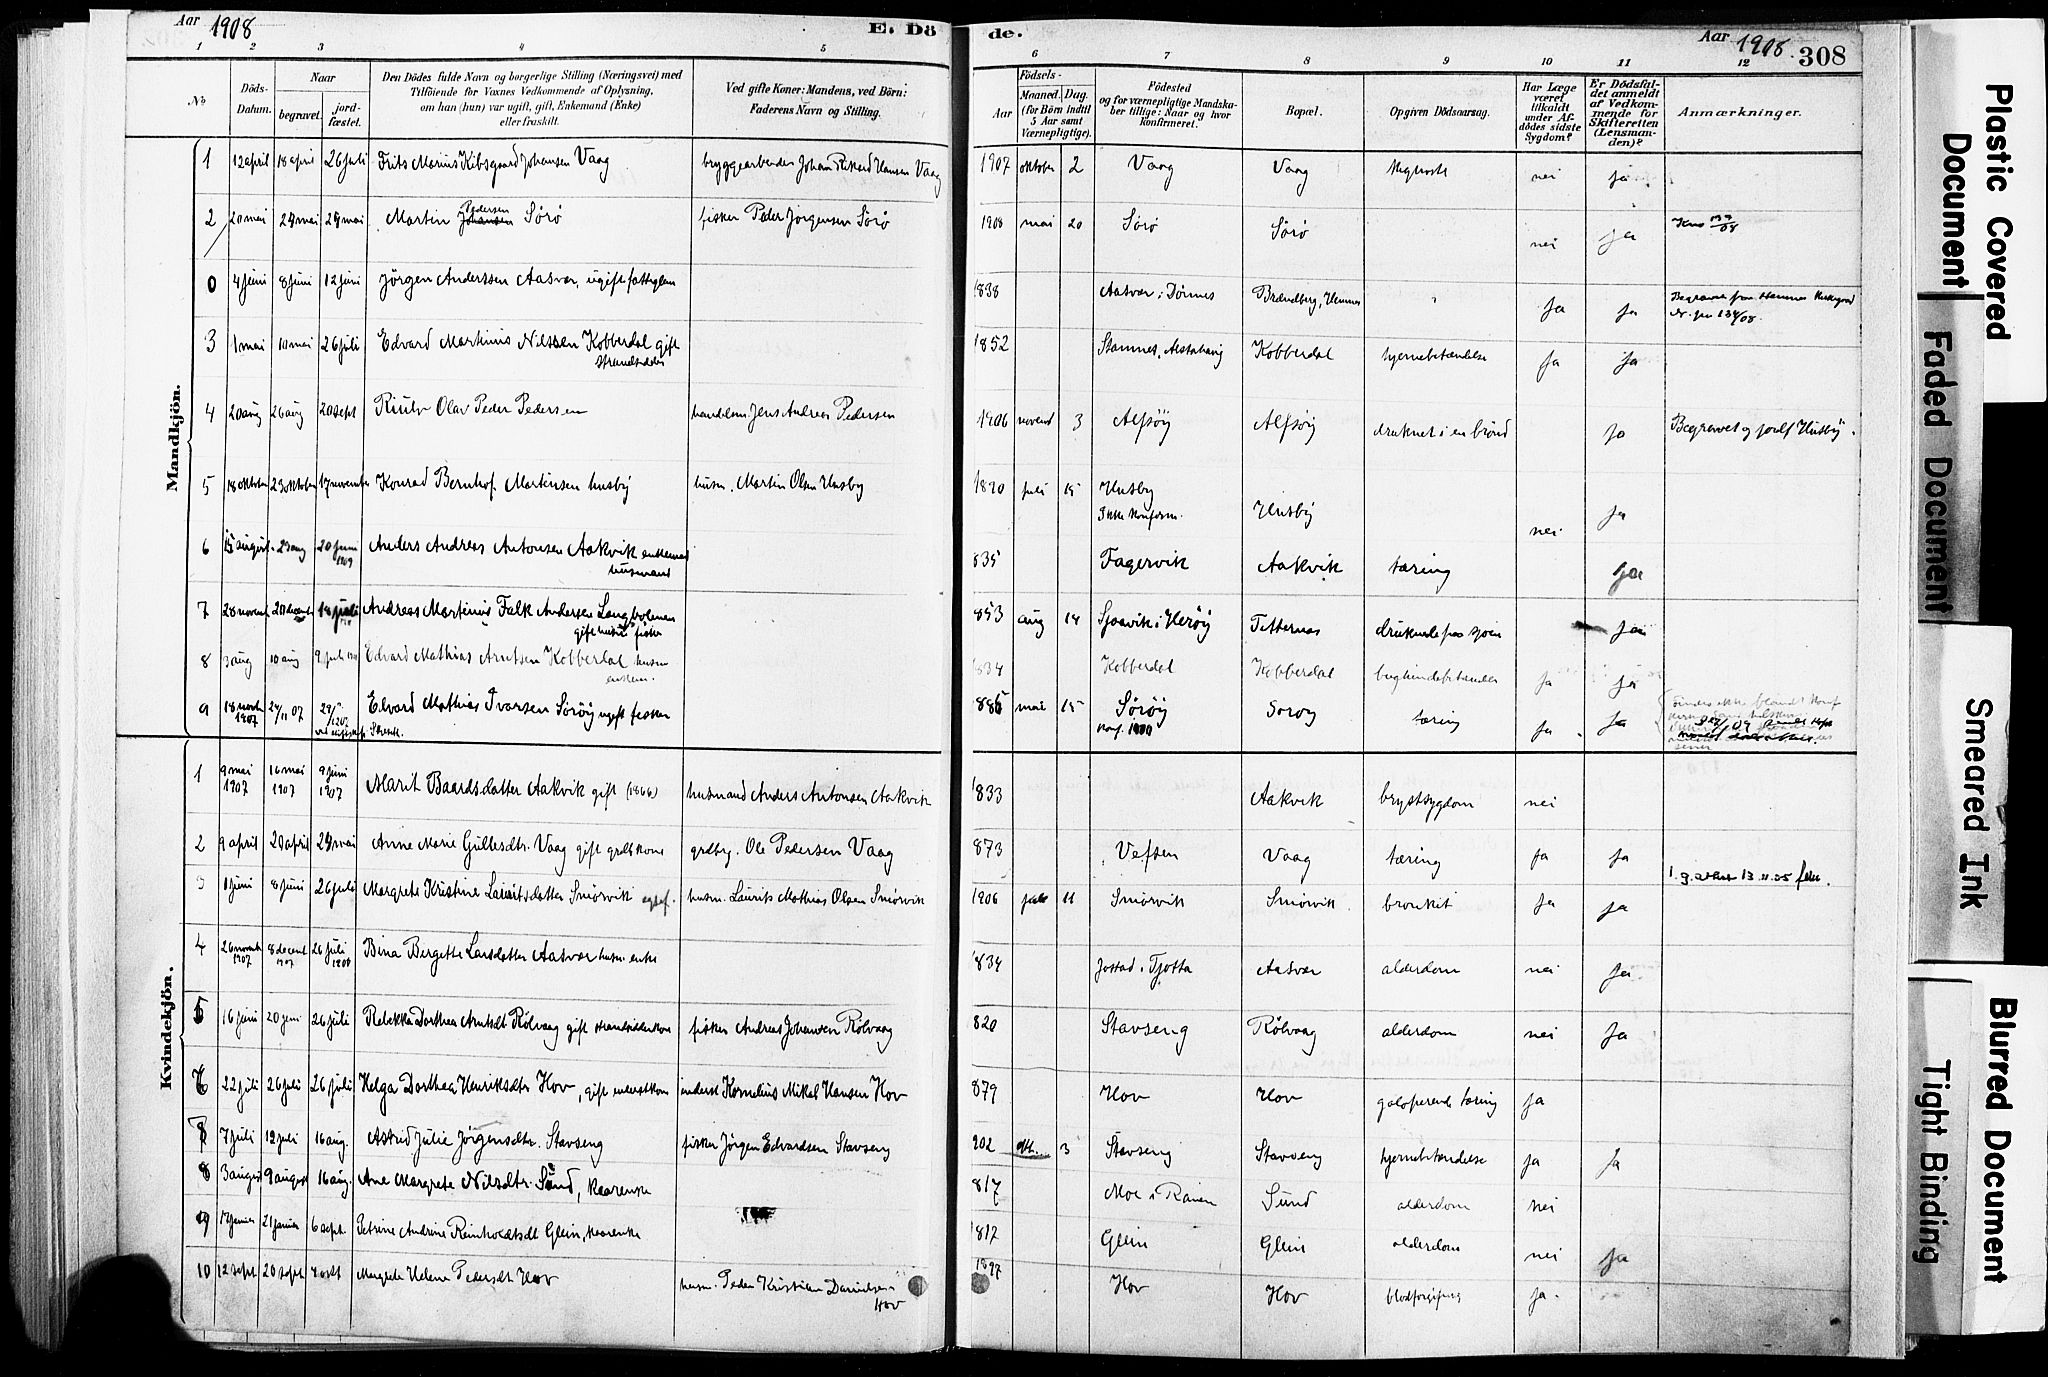 Aar 1908
E. Dö
de.
Aar 1908. 308
1 2 3 4 5 6 7 8 9 10 11 12
No
Döds-Datum.
Naar
begravet.
jord-fæstet.
Den Dödes fulde Navn og borgerlige Stilling (Næringsvei) med
Tilföiende for Voxnes Vedkommende af Oplysning,
om han (hun) var ugift, gift, Enkemand (Enke)
eller fraskilt.
Ved gifte Koner: Mandens, ved Börn:
Faderens Navn og Stilling.
Födsels-
Aar
Maaned. Dag.
(for Börn indtil
5 Aar samt
Værnepligtige).
Födested
og for værnepligtige Mandska-
ber tillige: Naar og hvor
Konfirmeret.
Bopæl.
Opgiven Dödsaarsag.
Har Læge
været
tilkaldt
under Af-
dödes sidste
Sygdom?
Er Dödsfal-
det anmeldt
af Vedkom-
mende for
Skifteretten
(Lensman-
den)?
Anmærkninger.
Mandkjön.
1 12 april 18 april 26 juli Frits Marius Kibsgaard Johansen Vaag bryggearbeider Johan Rikard Hansen Vaag 1907 oktober 2 Vaag Vaag nei ja
2 20 mai 24 mai 24 mai Martin Johansen Pedersen Sörö fisker Peder Jörgensen Sörö 1908 mai 20 Sörö Sörö nei ja
0 4 juni 8 juni 12 juni Jörgen Anderssen Aasvær, ugift fattiglem 1838 Aasvær i Dönnes Brændberg, Hemnes ja ja Begravet paa Hemnes Kirkegaard
3 1 mai 10 mai 26 juli Edvard Martinius Nilssen Kobberdal gift
strandsidder 1852 Stamnes, Alstahaug Kobberdal hjernebetændelse ja ja
4 20 aug 26 aug 20 sept Olav Peder Pedersen handelsm. Jens Andreas Pedersen 1906 novemb 3 Alfsöy Alfsöy druknet i en brönd ja Begravet og jordf Husby.
5 18 oktober 23 oktober 17 november Konrad Bernhof Martinsen Husby husm. Martin Olsen Husby 1890 juli 15 Husby
Ikke konfirm. Husby nei ja
6 15 august 23 aug 20 juni
1909 Anders Andreas Antonsen Aakvik enkemand
husmand 835 Fagervik Aakvik tæring ja
7 28 novemb Andreas Martinus Falk Andersen Langholmen
gift husm fisker 853 aug 14 Sjoavik i Heröy Titternes druknede paa sjöen ja
8 3 aug 10 aug Edvard Mathias Arntsen Kobberdal husm
enkem. 834 Kobberdal Kobberdal ja ja
9 18 novb
1907 24/11 07 Edvard Mathias Ivarsen Söröy ugift fisker 886 mai 15 Söröy
konf. 1900 Soroy tæring ja ja
Kvindekjön.
1 9 mai
1907 16 mai
1907 9 juni
1907 Marit Baardsdatter Aakvik gift (1866) husmand Anders Antonsen Aakvik 833 Aakvik brystsygdom nei
2 9 april 20 april 24 mai Anne Marie Gullesdtr. Vaag gift grdbr kone grdbr. Ole Pedersen Vaag 873 Vefsen Vaag tæring ja ja
3 1 juni 8 juni 26 juli Margrete Kristine Lauritsdatter Smörvik husm. Laurits Mathias Olsen Smörvik 1906 11 Smörvik Smörvik bronkit ja ja
4 26 novemb
1907 8 decemb
1907 26 juli
1908 Bina Bergette Larsdatter Aasvær husm. enke 834 Jostad i Tjotta Aasvær alderdom nei ja
5 16 juni 20 juni 26 juli Rebekka Dorthea Arntsdt Rölvaag gift strandsidderkone fisker Andreas Johansen Rölvaag 820 Stavseng Rölvaag alderdom nei ja
6 22 juli 26 juli 26 juli Helga Dorthea Henriksdtr Hov, gift inderstkone inderst Kornelius Mikal Hansen Hov 879 Hov Hov galoperende tæring ja
8 7 juli 12 juli 16 aug. Astrid Julie Jörgensdtr. Stavseng fisker Jörgen Edvardsen Stavseng 902 okt. 3 Stavseng Stavseng hjernebetændelse ja ja
8 3 august 9 august 16 aug. Ane Margrete Nilsdtr. Sund, kaarenke 817 Moe i Ranen Sund alderdom nei
9 17 januar 21 januar 6 sept. Petrine Andrine Reinholdtsdt Glein, kaarenke 817 Glein Glein alderdom nei ja
10 12 sept 20 sept 4 okt Margrete Helene Pedersdt Hov husm. Peder Kristian Danielsen
Hov 1897 Hov Hov blodforgiftning ja
Plastic Covered
Document
Faded Document
Smeared Ink
Blurred Document
Tight Binding